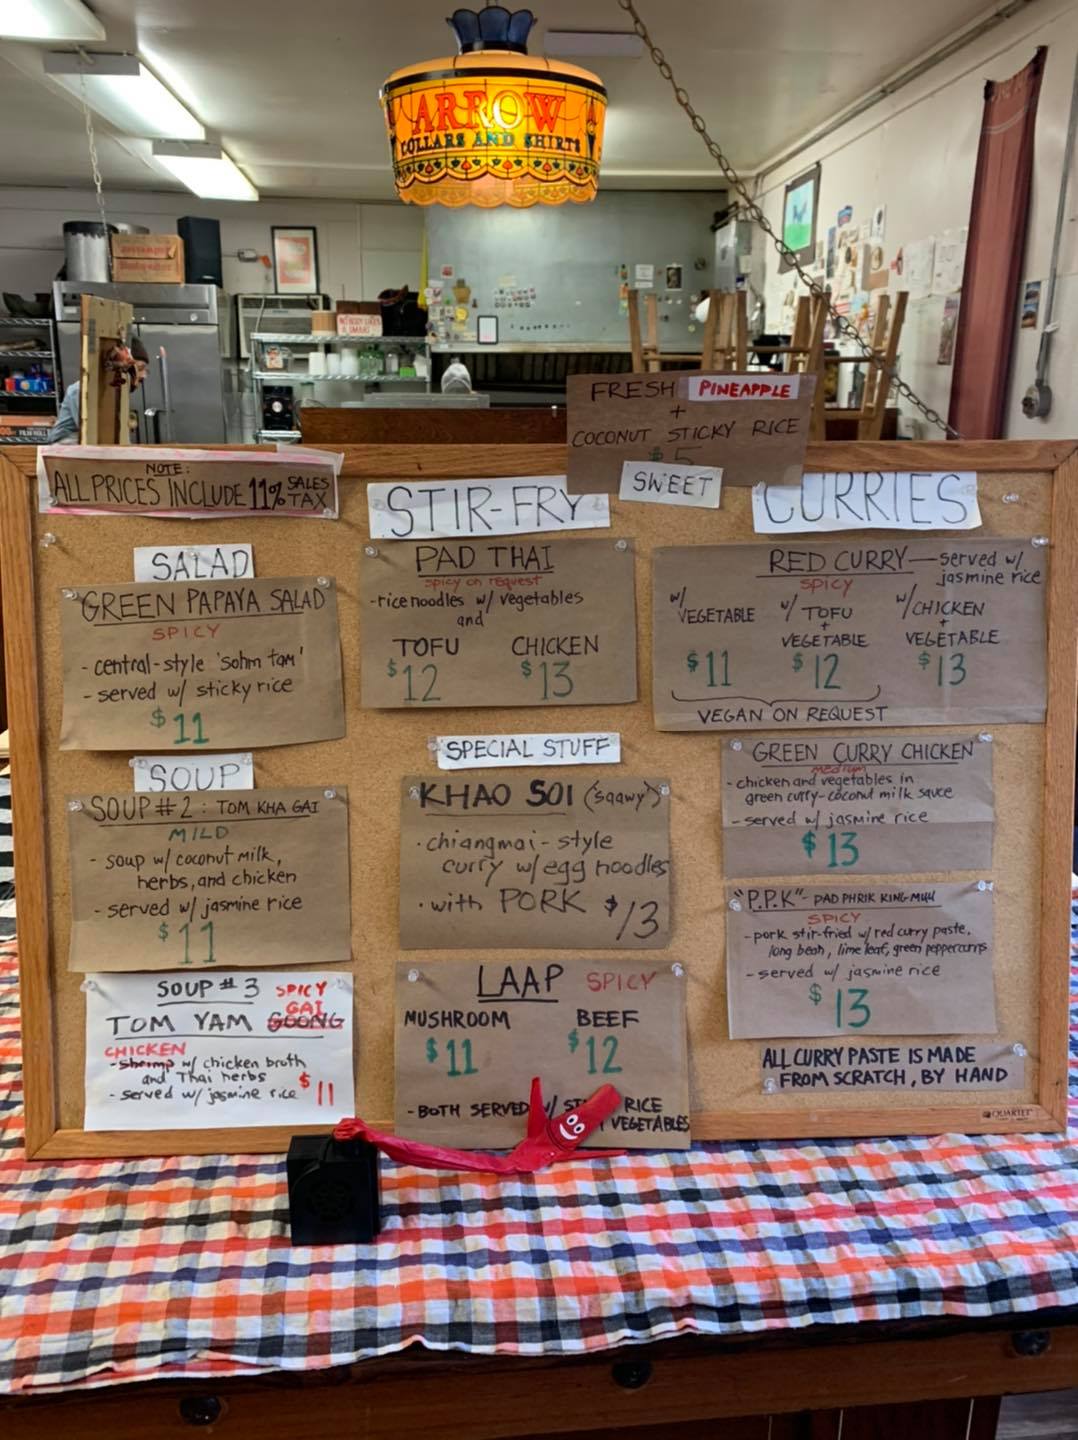 ARROW
COLLARS AND SHIRTS
FRESH PINEAPPLE
+
COCONUT STICKY RICE
$5
SWEET
NOTE:
ALL PRICES INCLUDE 11% SALES TAX
SALAD
GREEN PAPAYA SALAD
SPICY
- central-style 'sohm tam'
- served w/ sticky rice
$11
SOUP
SOUP #2: TOM KHA GAI
MILD
- soup w/ coconut milk,
herbs, and chicken
- served w/ jasmine rice
$11
SOUP #3 SPICY
GAI
TOM YAM GOONG
CHICKEN
- shrimp w/ chicken broth
and Thai herbs
- served w/ jasmine rice $11
STIR-FRY
PAD THAI
spicy on request
- rice noodles w/ vegetables
and
TOFU CHICKEN
$12 $13
SPECIAL STUFF
KHAO SOI ('saawy')
· chiangmai-style
curry w/ egg noodles
· with PORK $13
LAAP SPICY
MUSHROOM BEEF
$11 $12
- BOTH SERVED W/ RICE
VEGETABLES
CURRIES
RED CURRY — served w/
jasmine rice
SPICY
w/ VEGETABLE w/ TOFU + VEGETABLE w/ CHICKEN + VEGETABLE
$11 $12 $13
VEGAN ON REQUEST
GREEN CURRY CHICKEN
medium
- chicken and vegetables in
green curry-coconut milk sauce
- served w/ jasmine rice
$13
"P.P.K" - PAD PHRIK KING MUU
SPICY
- pork stir-fried w/ red curry paste,
long bean, lime leaf, green peppercorns
- served w/ jasmine rice
$13
ALL CURRY PASTE IS MADE
FROM SCRATCH, BY HAND
QUARTET